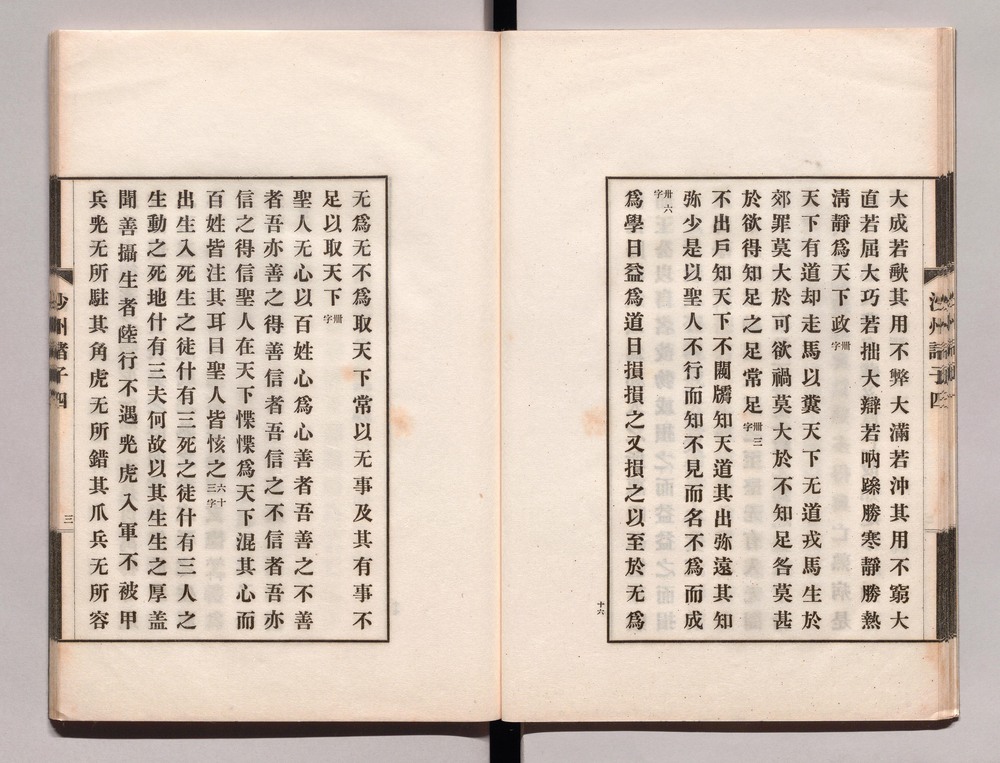 大成若歇其用不弊大滿若沖其用不窮大
直若屈大巧若拙大辯若吶躁勝寒靜勝熱
清靜爲天下政卌字
天下有道却走馬以糞天下无道戎馬生於
郊罪莫大於可欲禍莫大於不知足咎莫甚
於欲得知足之足常足卌三字
不出戶知天下不闚牖知天道其出弥遠其知
弥少是以聖人不行而知不見而名不爲而成
卌六字
爲學日益爲道日損損之又損之以至於无爲
十六
无爲无不爲取天下常以无事及其有事不
足以取天下卌字
聖人无心以百姓心爲心善者吾善之不善
者吾亦善之得善信者吾信之不信者吾亦
信之得信聖人在天下惵惵爲天下混其心而
百姓皆注其耳目聖人皆㤥之六十三字
出生入死生之徒什有三死之徒什有三人之
生動之死地什有三夫何故以其生生之厚盖
聞善攝生者陸行不遇兕虎入軍不被甲
兵兕无所駐其角虎无所錯其爪兵无所容
沙州諸子四
三